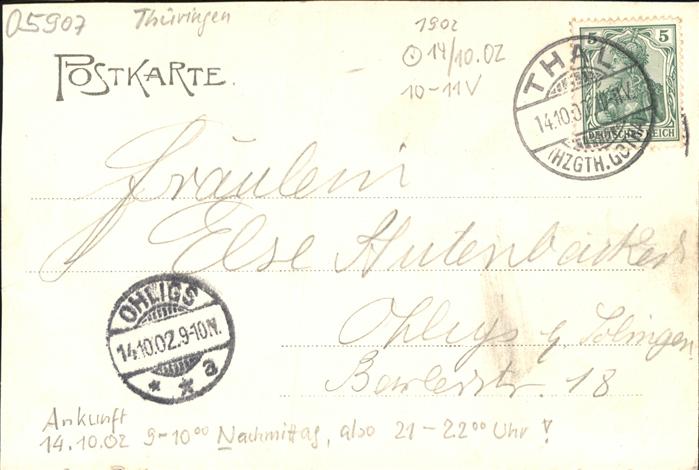 05907 Thüringen
1902
14/10.02
10-11V
POSTKARTE.
5 5
DEUTSCHES REICH
THAL
14.10.02. 10-11V.
(HZGTH. GOTHA)
Fräulein
Else Hutenbäcker
Ohligs b/ Solingen
18
OHLIGS
14.10.02.9-10N.
* * a
Ankunft
14.10.02 9-10⁰⁰ Nachmittag, also 21-22⁰⁰ Uhr!